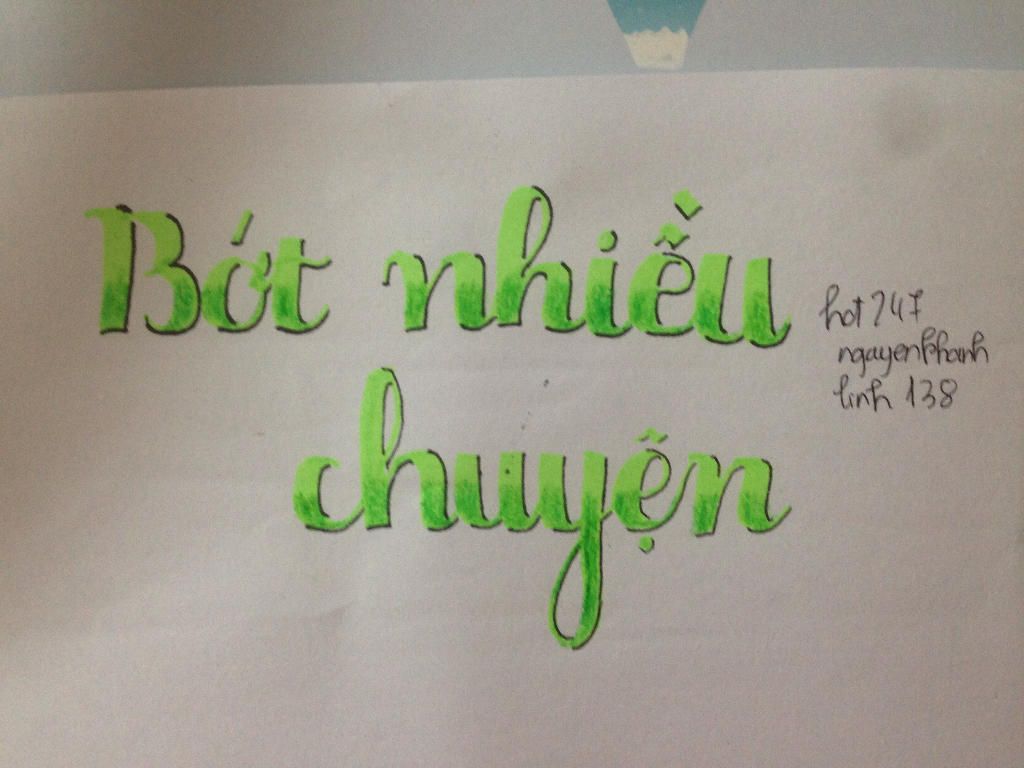 Bớt nhiều
chuyện
hot247
nguyenkhanh
linh 138